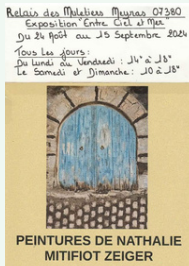 Relais des Muletiers Meyras 07380
Exposition "Entre Ciel et Mer"
Du 24 Août au 15 Septembre 2024
Tous les jours:
Du Lundi au Vendredi : 14H à 18H
Le Samedi et Dimanche : 10 à 18H
PEINTURES DE NATHALIE
MITIFIOT ZEIGER